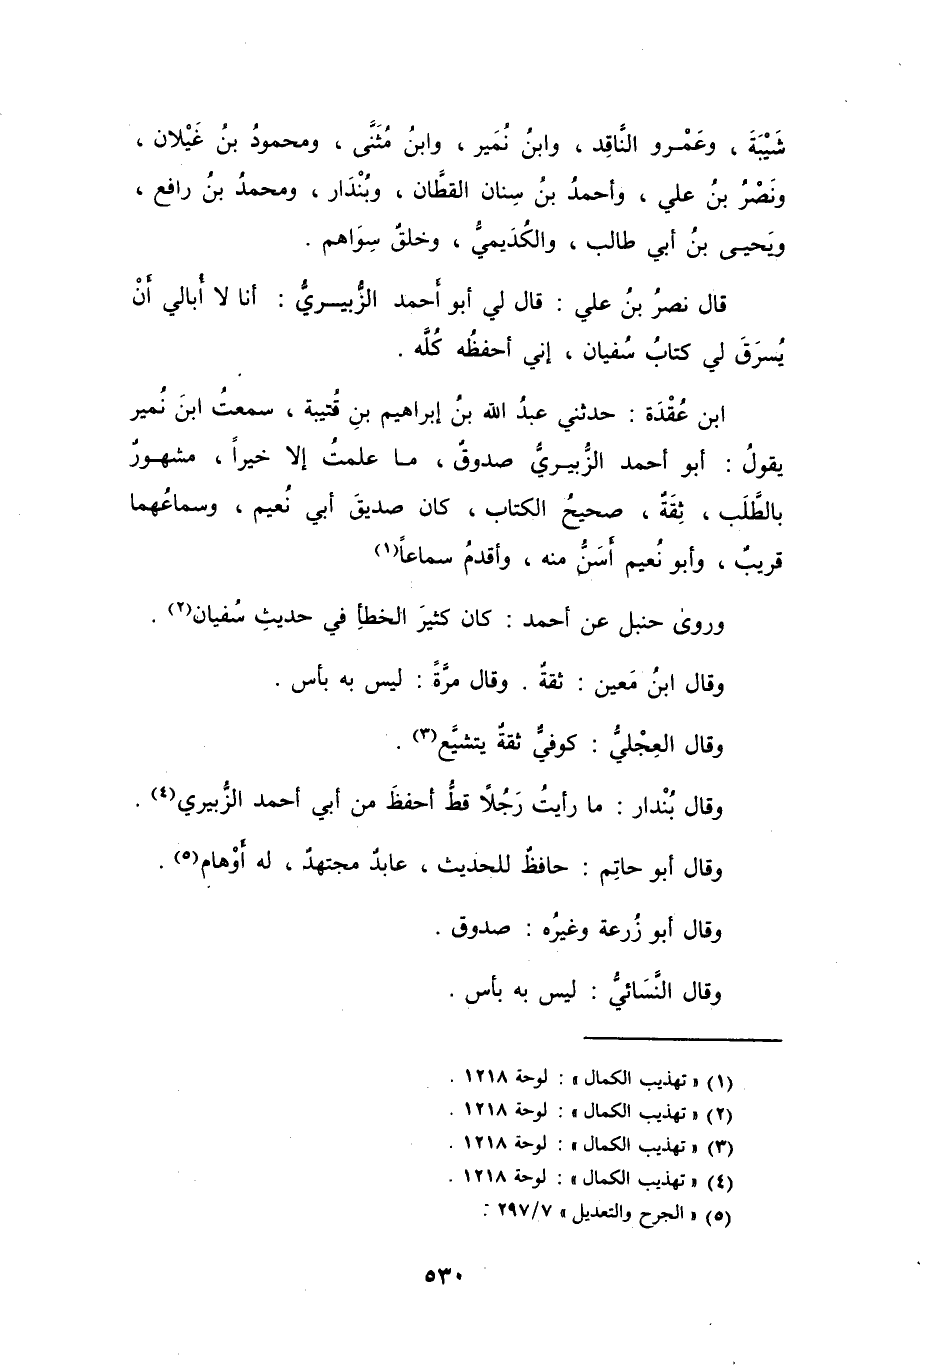 شَيْبَةَ ، وعَمْرو النَّاقِد ، وابنُ نُمَير ، وابنُ مُثَنَّى ، ومحمودُ بنُ غَيْلان ،
ونَصْرُ بنُ علي ، وأحمدُ بنُ سِنان القطَّان ، وبُنْدَار ، ومحمدُ بنُ رافع ،
ويَحيى بنُ أبي طالب ، والكُدَيميُّ ، وخلقٌ سِوَاهم .
قال نصرُ بنُ علي : قال لي أبو أَحمد الزُّبيريُّ : أنا لا أُبالي أَنْ
يُسرَقَ لي كتابُ سُفيان ، إني أحفظُه كُلَّه .
ابن عُقْدَة : حدثني عبدُ الله بنُ إبراهيم بنِ قُتيبة ، سمعتُ ابنَ نُمير
يقولُ : أبو أحمد الزُّبيريُّ صدوقٌ ، ما علمتُ إلا خيراً ، مشهورٌ
بالطَّلَب ، ثِقَةٌ ، صحيحُ الكتاب ، كان صديقَ أبي نُعيم ، وسماعُهما
قريبٌ ، وأبو نُعيم أَسَنُّ منه ، وأقدمُ سماعاً(١)
وروىٰ حنبل عن أحمد : كان كثيرَ الخطأِ في حديثِ سُفيان(٢) .
وقال ابنُ مَعين : ثقةٌ . وقال مرَّةً : ليس به بأس .
وقال العِجْليُّ : كوفيٌّ ثقةٌ يتشيَّع(٣) .
وقال بُنْدار : ما رأيتُ رَجُلًا قطُّ أحفظَ من أبي أحمد الزُّبيري(٤) .
وقال أبو حاتِم : حافظٌ للحديث ، عابدٌ مجتهدٌ ، له أَوْهام(٥) .
وقال أبو زُرعة وغيرُه : صدوق .
وقال النَّسَائيُّ : ليس به بأس .
(١) « تهذيب الكمال » : لوحة ١٢١٨ .
(٢) « تهذيب الكمال » : لوحة ١٢١٨ .
(٣) « تهذيب الكمال » : لوحة ١٢١٨ .
(٤) « تهذيب الكمال » : لوحة ١٢١٨ .
(٥) « الجرح والتعديل » ٢٩٧/٧ .
٥٣٠